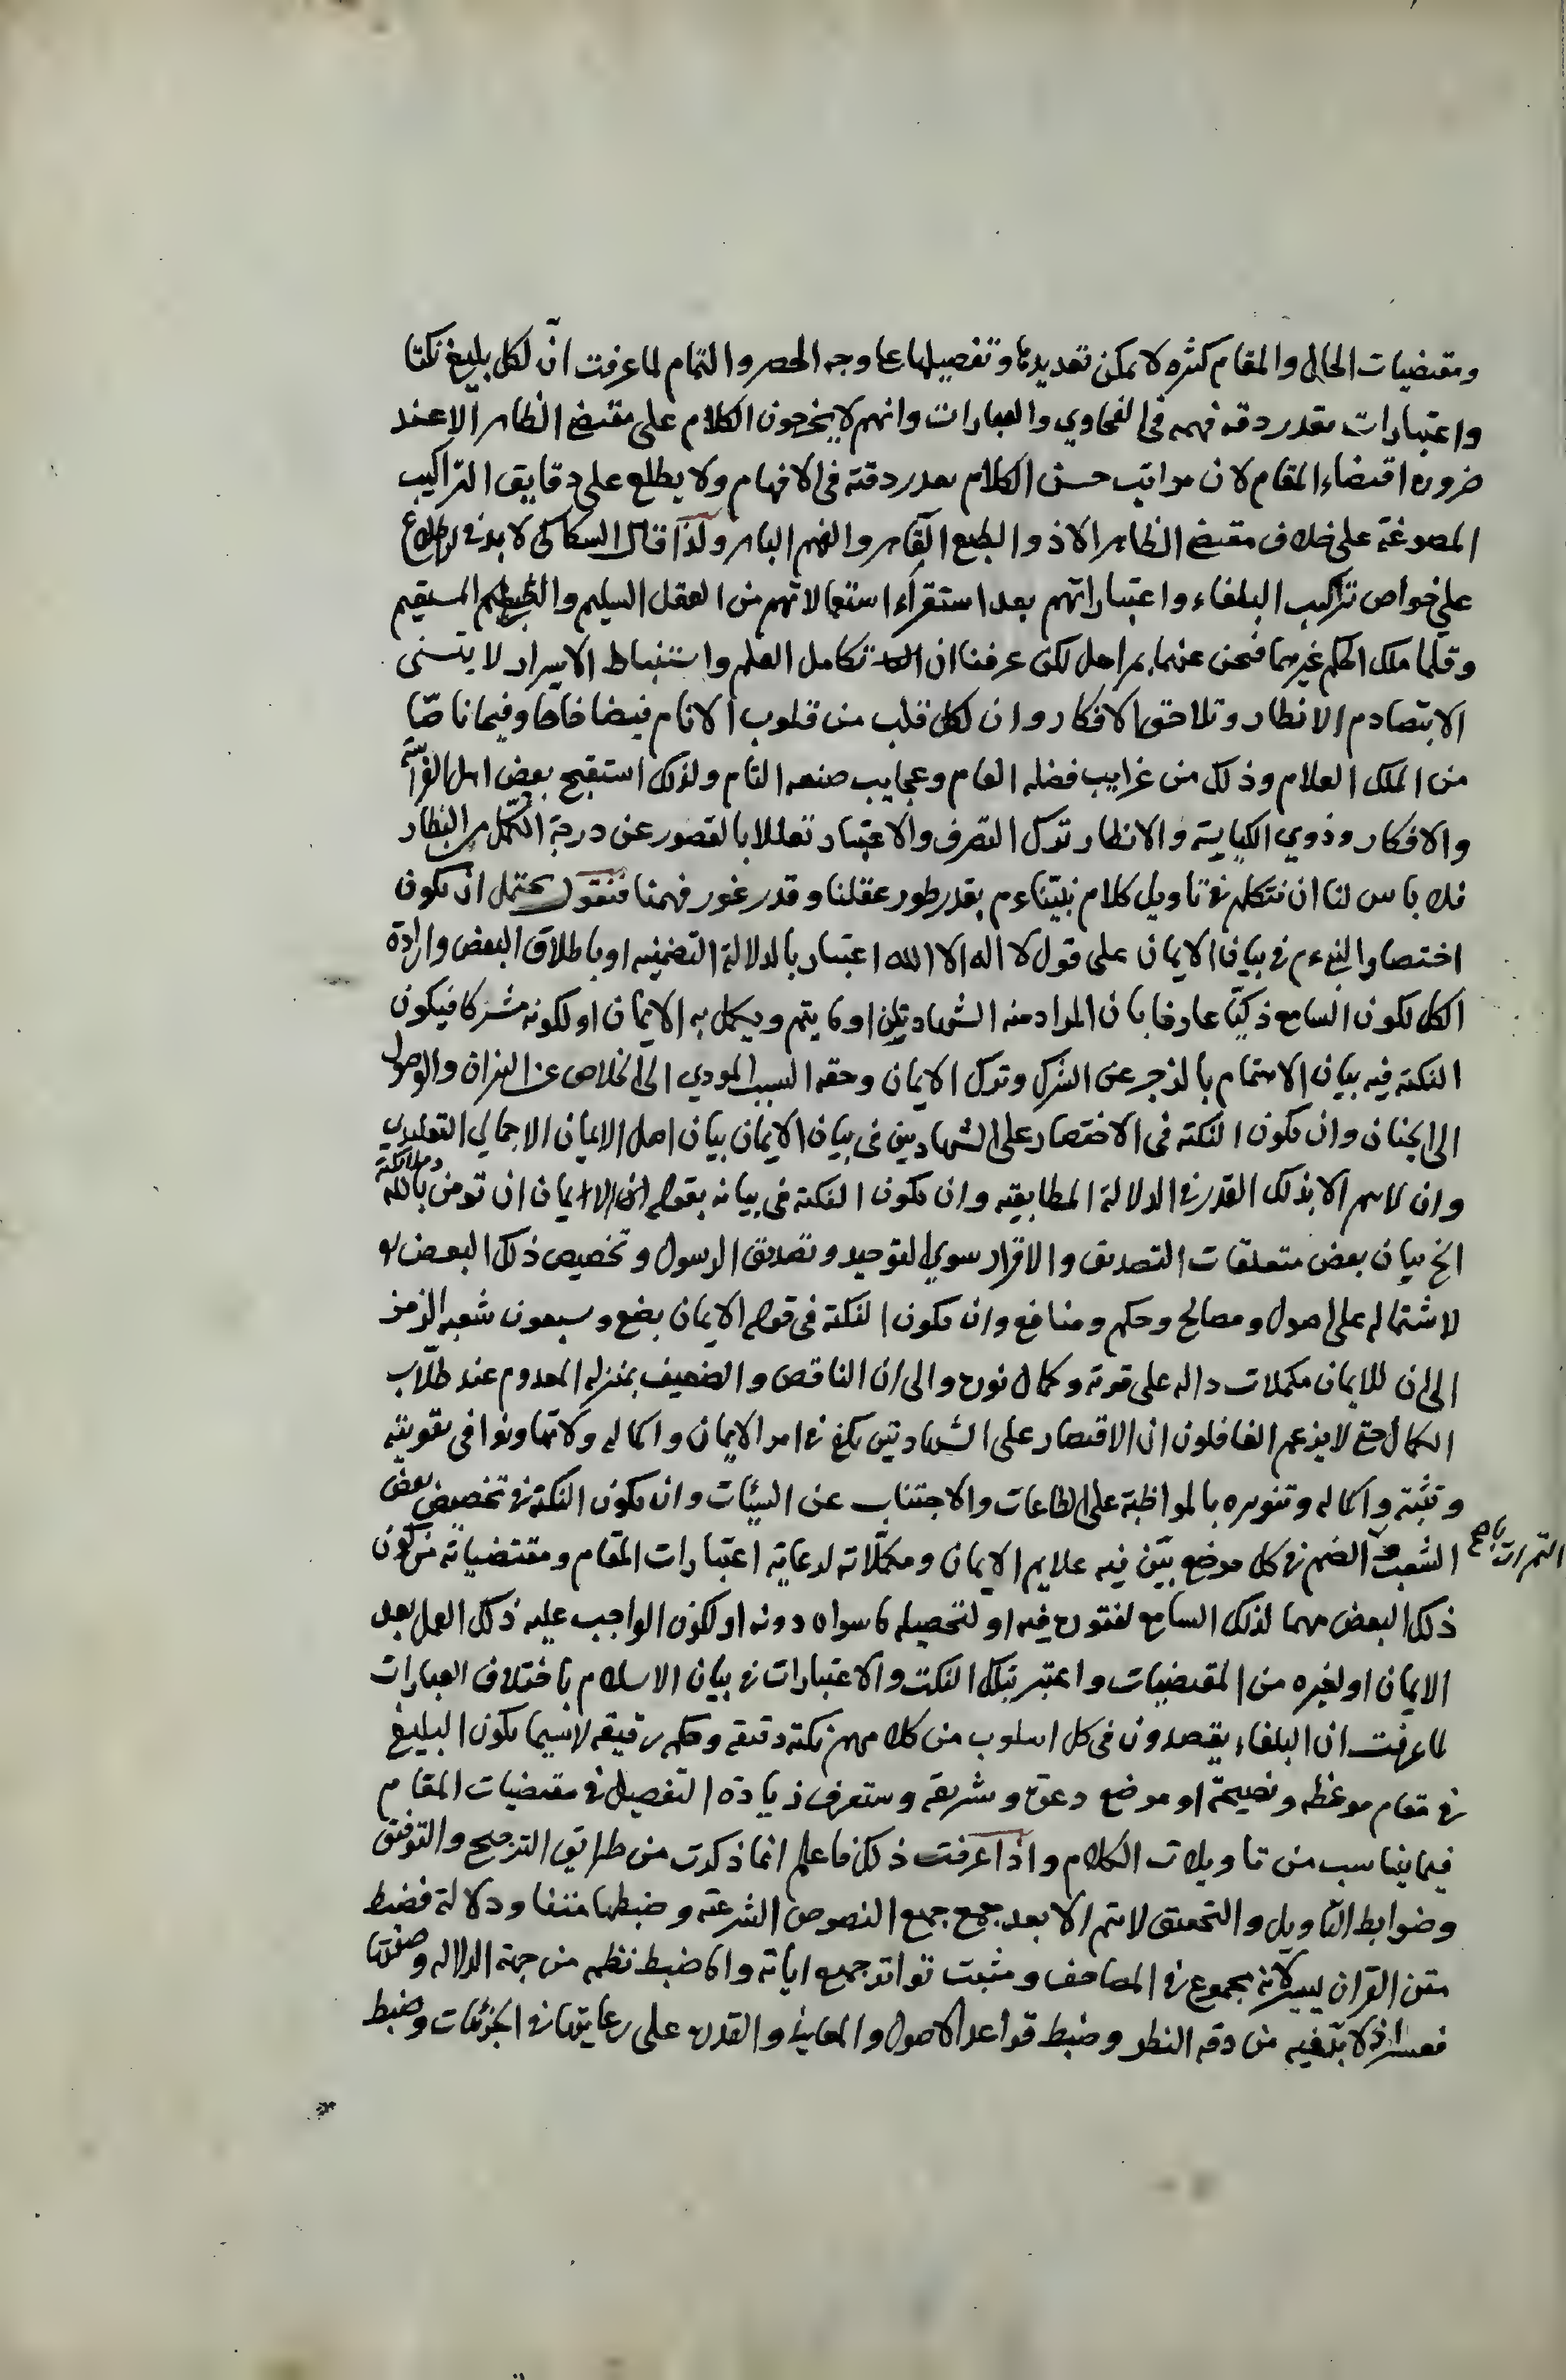 ومقتضيات الحال والمقام كثيره لا يمكن تعديدها وتفصيلها علي وجه الحصر والتمام لما عرفت انّ لكل بليغ نكتا
واعتبارات بقدر دقة فهمه في الفحاوي والعبارات وانهم لا يخرجون الكلام على مقتضى الظاهر الا عند
ضروره اقتضاء المقام لان مراتب حسن الكلام بقدر دقته في الافهام ولا يطلع على دقايق التراكيب
المصوغة على خلاف مقتضى الظاهر الا ذو الطبع القاهر والفهم الباهر ولذا قال السكاكي لا بد في الاطلاع
علي خواص تراكيب البلغاء واعتباراتهم بعد استقراء استعمالاتهم من العقل السليم والطبع المستقيم
وقلما ملك الحكم غيرهما فنحن عنهما بمراحل لكن عرفنا ان تكامل العلم واستنباط الاسرار لا يتسنى
الا بتصادم الانظار وتلاحق الافكار وان لكل قلب من قلوب الانام فيضا خاصا وفهما ناصّا
من الملك العلام وذلك من غرايب فضله العام وعجايب صنعه التام ولذلك استقبح بعض اهل الفراسة
والافكار وذوي الكياسة والانظار ترك التصرف والاعتبار تعللا بالقصور عن درجة الكمّل من النظار
فلا باس لنا ان نتكلم في تاويل كلام نبيّنا عم بقدر طور عقلنا وقدر غور فهمنا فنقول يحتمل ان يكون
اختصار النبي عم في بيان الايمان على قول لا اله الا الله اعتبار بالدلالة التضمنيه او باطلاق البعض وارادة
الكل لكون السامع ذكيّا عارفا بان المراد منه الشهادتين او ما يتم ويكمل به الايمان او لكونه مشركا فيكون
النكتة فيه بيان الاهتمام بالزجر عن الشرك وترك الايمان وحقه السبب المودي الى الخلاص عن النيران والوصول
الى الجنان وان يكون النكتة في الاختصار على الشهادتين في بيان الايمان بيان اصل الايمان الاجمالي التقليدي
وان لا يتم الا بذلك القدر في الدلالة المطابقيه وان يكون النكتة في بيانه بقوله ان الايمان ان تومن بالله وملائكته
الخ بيان بعض متعلقات التصديق والاقرار سوي التوحيد وتصديق الرسول وتخصيص ذلك البعض
لاشتماله على اصول ومصالح وحكم ومنافع وان يكون النكتة في قوله الايمان بضع وسبعون شعبه الرمز
الى ان للايمان مكملات داله على قوته وكمال نوره والى ان الناقص والضعيف بمنزله المعدوم عند طلّاب
الكمال حتى لا يزعم الغافلون ان الاقتصار على الشهادتين يكفي في امر الايمان واكماله ولا يتهاونوا في تقويته
وتثبته واكماله وتنويره بالمواظبة على الطاعات والاجتناب عن السيئات وان يكون النكتة في تخصيص بعض
الثمرات
الشعب و الضم في كل موضع بيّن فيه علايم الايمان ومكمّلاته لرعاية اعتبارات المقام ومقتضياته من كون
ذلك البعض مهما لذلك السامع لفتوره فيه او لتحصيله ما سواه دونه او لكون الواجب عليه ذلك العمل بعد
الايمان او لغيره من المقتضيات واعتبر تلك النكت والاعتبارات في بيان الاسلام باختلاف العبارات
لما عرفت ان البلغاء يقصدون في كل اسلوب من كلامهم نكتة دقيقة وحكم رقيقه لا سيما يكون البليغ
في مقام موعظه ونصيحة او موضع دعوة وشريعة وستعرف زيادة التفصيل في مقتضيات المقام
فيما يناسب من تاويلات الكلام واذا عرفت ذلك فاعلم ان ما ذكرت من طرايق الترجيح والتوفيق
وضوابط التاويل والتحقيق لا يتم الا بعد جمع جميع النصوص الشرعية وضبطها متنا ودلالة فضبط
متن القران يسير لانه مجموع في المصاحف ومثبت تواتر جميع اياته واما ضبط نظمه من جهة الدلاله وصفتها
فعسير اذ لا بدّ فيه من دقه النظر وضبط قواعد الاصول والمعاني والقدرة على رعايتها في الجزئيات وضبط